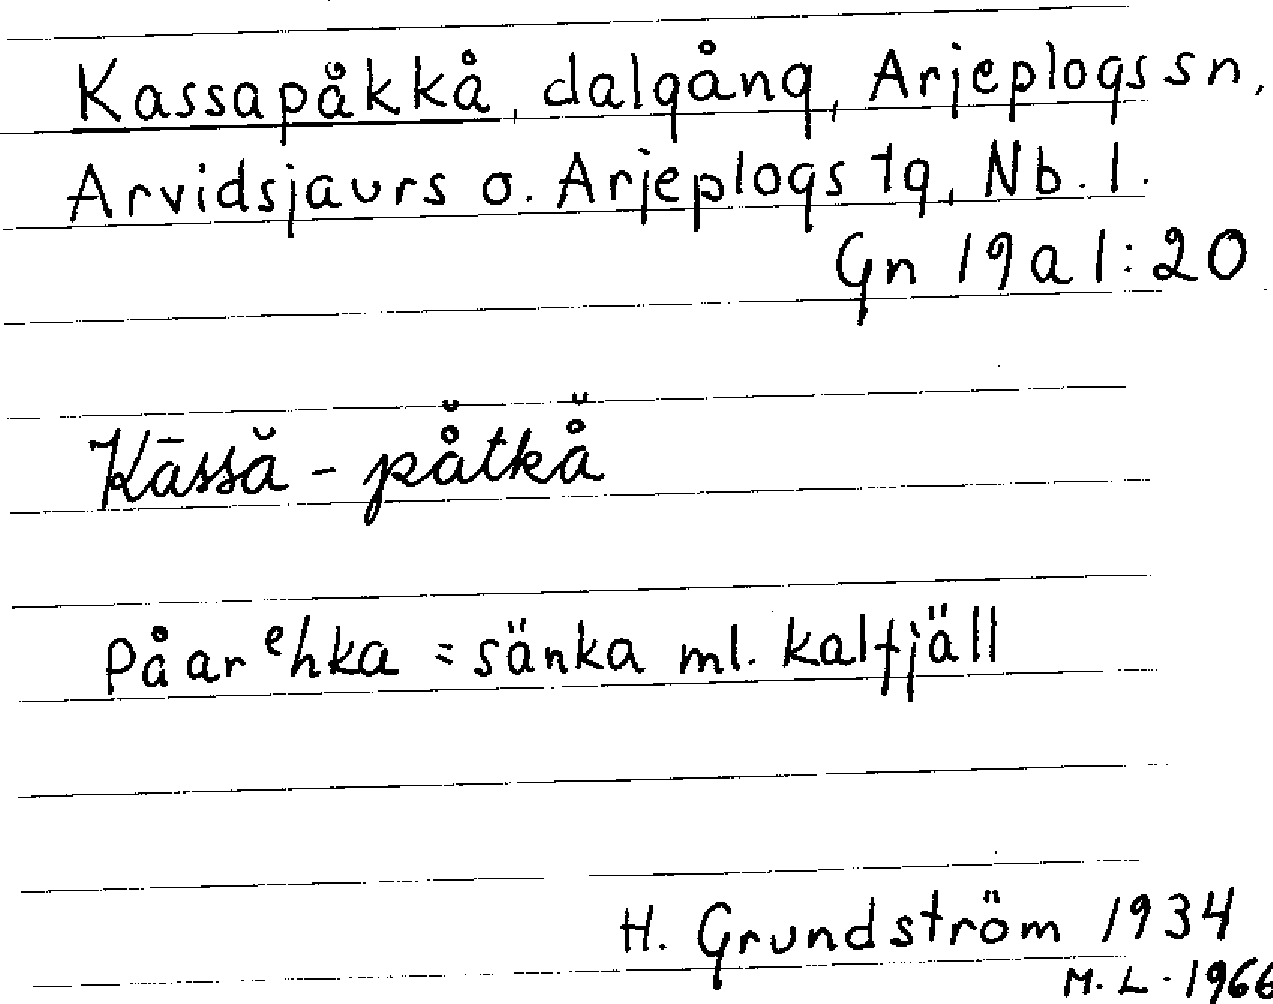 Kassapåkkå, dalgång, Arjeplogs sn,
Arvidsjaurs o. Arjeplogs tg, Nb. l.
Gn 19 a 1:20
Kāssă - på̆tkå̆
Påar ehka = sänka ml. kalfjäll
H. Grundström 1934
M. L. 1966